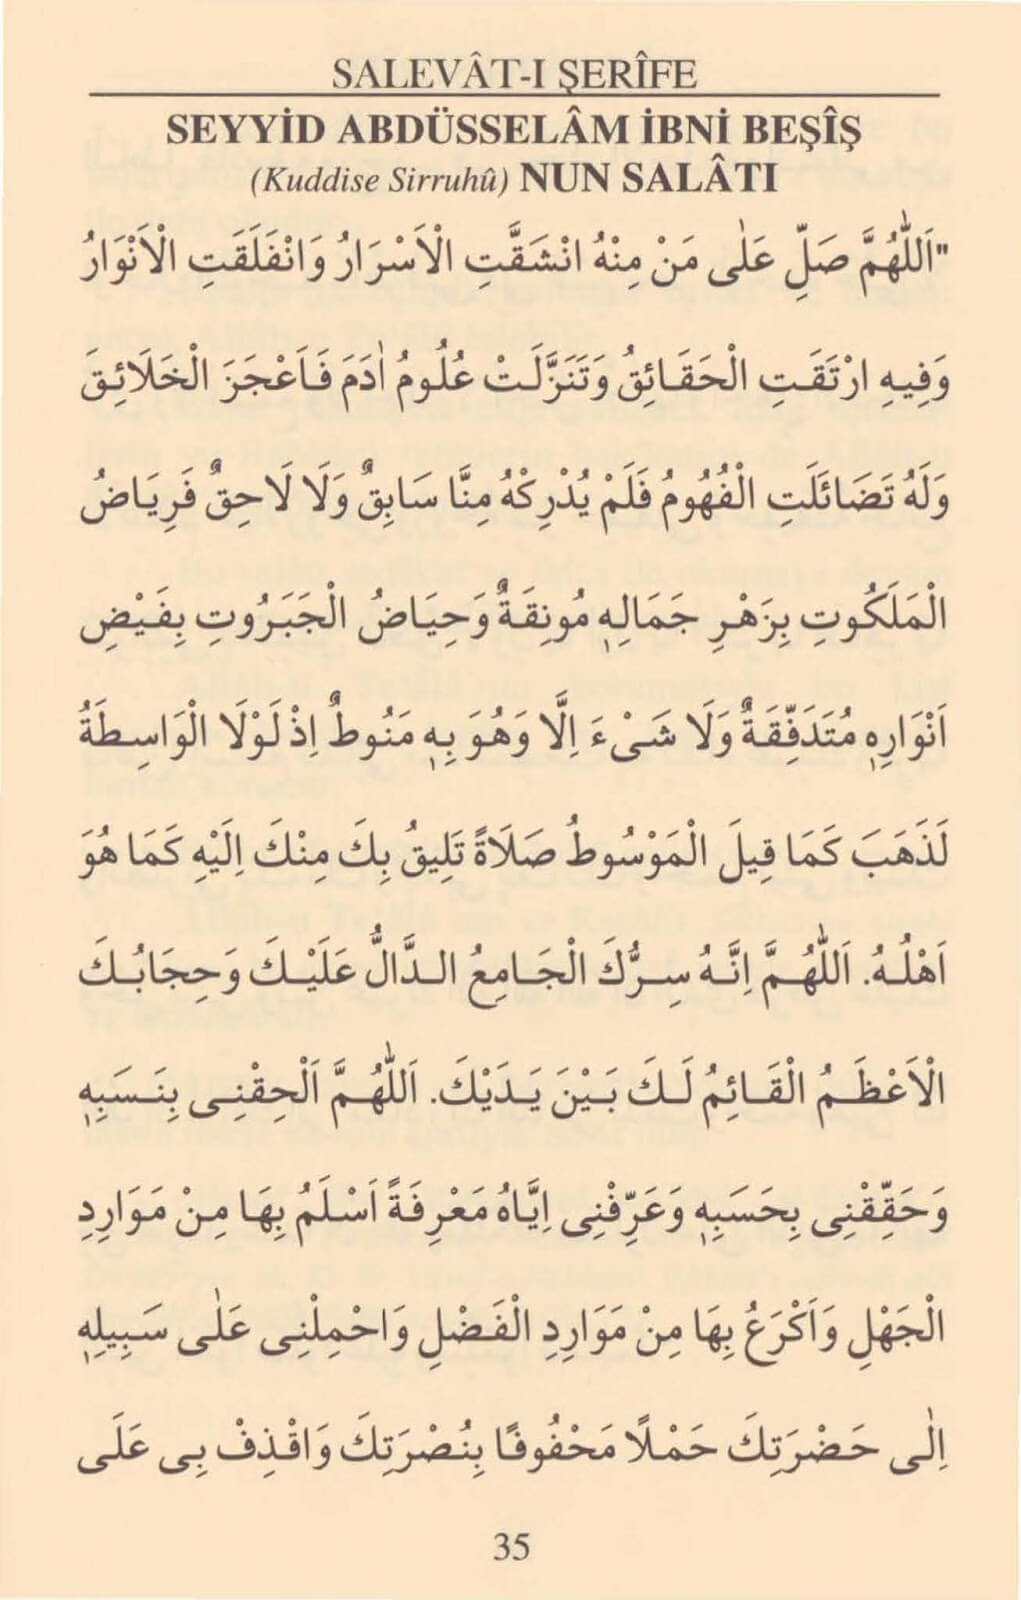 SALEVÂT-I ŞERÎFE
SEYYİD ABDÜSSELÂM İBNİ BEŞÎŞ
(Kuddise Sirruhû) NUN SALÂTI
"اَللّٰهُمَّ صَلِّ عَلٰى مَنْ مِنْهُ انْشَقَّتِ الْاَسْرَارُ وَانْفَلَقَتِ الْاَنْوَارُ
وَفِيهِ ارْتَقَتِ الْحَقَائِقُ وَتَنَزَّلَتْ عُلُومُ اٰدَمَ فَاَعْجَزَ الْخَلَائِقَ
وَلَهُ تَضَائَلَتِ الْفُهُومُ فَلَمْ يُدْرِكْهُ مِنَّا سَابِقٌ وَلَا لَاحِقٌ فَرِيَاضُ
الْمَلَكُوتِ بِزَهْرِ جَمَالِهٖ مُونِقَةٌ وَحِيَاضُ الْجَبَرُوتِ بِفَيْضِ
اَنْوَارِهٖ مُتَدَفِّقَةٌ وَلَا شَىْءَ اِلَّا وَهُوَ بِهٖ مَنُوطٌ اِذْ لَوْلَا الْوَاسِطَةُ
لَذَهَبَ كَمَا قِيلَ الْمَوْسُوطُ صَلَاةً تَلِيقُ بِكَ مِنْكَ اِلَيْهِ كَمَا هُوَ
اَهْلُهُ. اَللّٰهُمَّ اِنَّهُ سِرُّكَ الْجَامِعُ الدَّالُّ عَلَيْكَ وَحِجَابُكَ
الْاَعْظَمُ الْقَائِمُ لَكَ بَيْنَ يَدَيْكَ. اَللّٰهُمَّ اَلْحِقْنِى بِنَسَبِهٖ
وَحَقِّقْنِى بِحَسَبِهٖ وَعَرِّفْنِى اِيَّاهُ مَعْرِفَةً اَسْلَمُ بِهَا مِنْ مَوَارِدِ
الْجَهْلِ وَاَكْرَعُ بِهَا مِنْ مَوَارِدِ الْفَضْلِ وَاحْمِلْنِى عَلٰى سَبِيلِهٖ
اِلٰى حَضْرَتِكَ حَمْلًا مَحْفُوفًا بِنُصْرَتِكَ وَاقْذِفْ بِى عَلَى
35